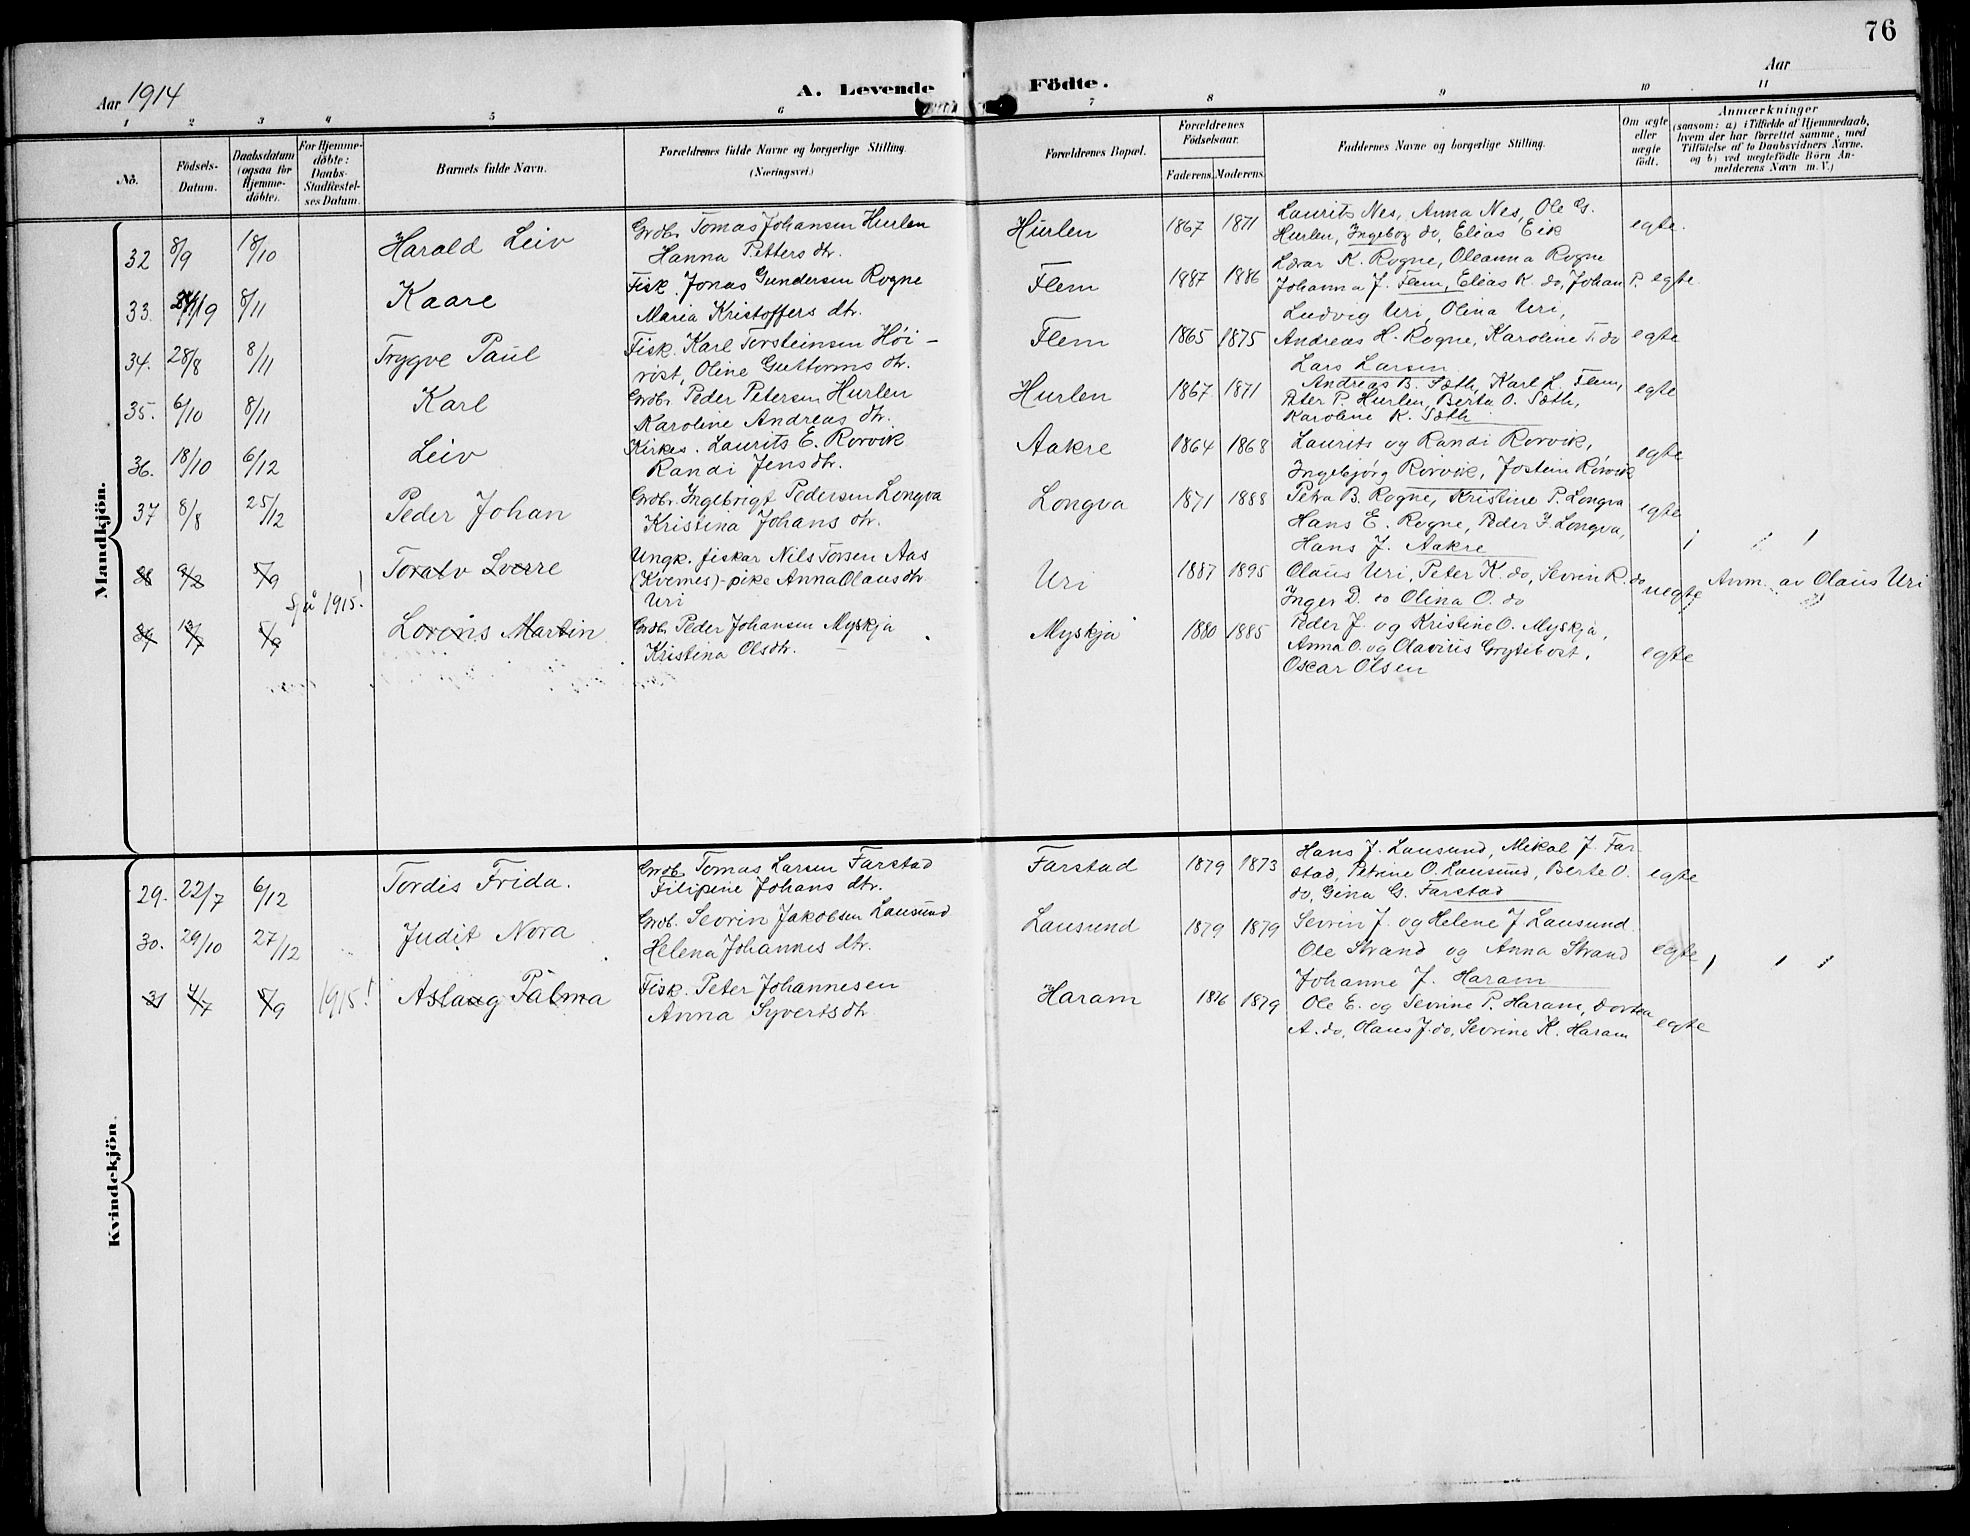 76
Aar 1914
A. Levende Födte.
Aar
1 2 3 4 5 6 7 8 9 10 11
No.
Födsels-Datum.
Daabsdatum (ogsaa for Hjemme-döbte).
For Hjemme-döbte: Daabs-Stadfæstel-ses Datum.
Barnets fulde Navn.
Forældrenes fulde Navne og borgerlige Stilling. (Næringsvei.)
Forældrenes Bopæl.
Forældrenes Födselsaar.
Faderens. Moderens.
Faddernes Navne og borgerlige Stilling.
Om ægte eller uægte født.
Anmærkninger
(saasom: a) i Tilfælde af Hjemmedaab, hvem der har forrettet samme, med Tilföielse af to Daabsvidners Navne, og b) ved uægtefödte Börn An-melderens Navn m. V.)
Mandkjön.
32 8/9 18/10 Harald Leiv
Grdbr. Tomas Johansen Hurlen
Hanna Petters dtr.
Hurlen 1867 1871
Laurits Nes, Anna Nes, Ole G.
Hurlen, Ingebog do, Elias Eik
egte.
33. /9 8/11 Kaare
Fisk. Jonas Gundersen Rogne
Maria Kristoffers dtr.
Flem 1887 1886
Ldvar K. Rogne, Oleanna Rogne
Johanna J. Flem, Elias K. do, Johan P.
egte.
34. 28/8 8/11 Trygve Paul
Fisk. Karl Torsteinsen Höi-
röst, Oline Guttorms dtr.
Flem 1865 1875
Ludvig Uri, Olina Uri,
Andreas H. Rogne, Karoline T. do
Lars Larsen
egte
35. 6/10 8/11 Karl
Grdbr. Peder Petersen Hurlen
Karoline Andreas dtr.
Hurlen 1867 1871
Andreas B. Sæth, Karl L. Flem,
Peter P. Hurlen, Berta O. Sæth,
Karoline K. Sæth
egte
36. 18/10 6/12 Leiv
Kirkes. Laurits E. Rorvik
Randi Jensdtr.
Aakre 1864 1868
Laurits og Randi Rorvik,
Ingebjörg Rorvik, Jostein Rörvik
egte
37 8/8 25/12 Peder Johan
Grdbr. Ingebrigt Pedersen Longva
Kristina Johans dtr.
Longva 1871 1888
Petra B. Rogne, Kristine P. Longva
Hans E. Rogne, Peder J. Longva,
Hans J. Aakre
egte
38 9/2 5/9 Toralv Sverre
Ungk. fiskar Nils Torsen Aas
(Kvernes)-pike Anna Olausdtr
Uri
Uri 1887 1895
Olaus Uri, Peter K. do, Sevrin R. do
Inger D. do Olina O. do
uegte
Anm. av Olaus Uri
Sjå 1915!
39 /7 5/9 Lorens Martin
Grdb. Peder Johansen Myskja
Kristena Olsdtr.
Myskja 1880 1885
Peder J. og Kristine O. Myskja,
Anna O. og Olavius Grytebøst,
Oscar Olsen
egte
Kvindekjön.
29. 22/7 6/12 Tordis Frida.
Grdb. Tomas Larsen Farstad
Filipine Johans dtr.
Farstad 1879 1873
Hans J. Lausund, Mikal J. Far-
stad, Petrine O. Lausund, Berte O.
do, Gina G. Farstad
egte
30. 29/10 27/12 Judit Nora
Grdb. Sevrin Jakobsen Lausund
Helena Johannes dtr.
Lausund 1879 1879
Sevrin J. og Helene J. Lausund.
Ole Strand og Anna Strand
Johanne J. Haram
egte
31 4/7 5/9 1915! Aslaug Palma
Fisk. Peter Johannesen
Anna Syvertsdtr
Haram 1876 1879
Ole E. og Sevrine P. Haram, Dortea
A. do, Olaus J. do, Sevrine K. Haram
egte